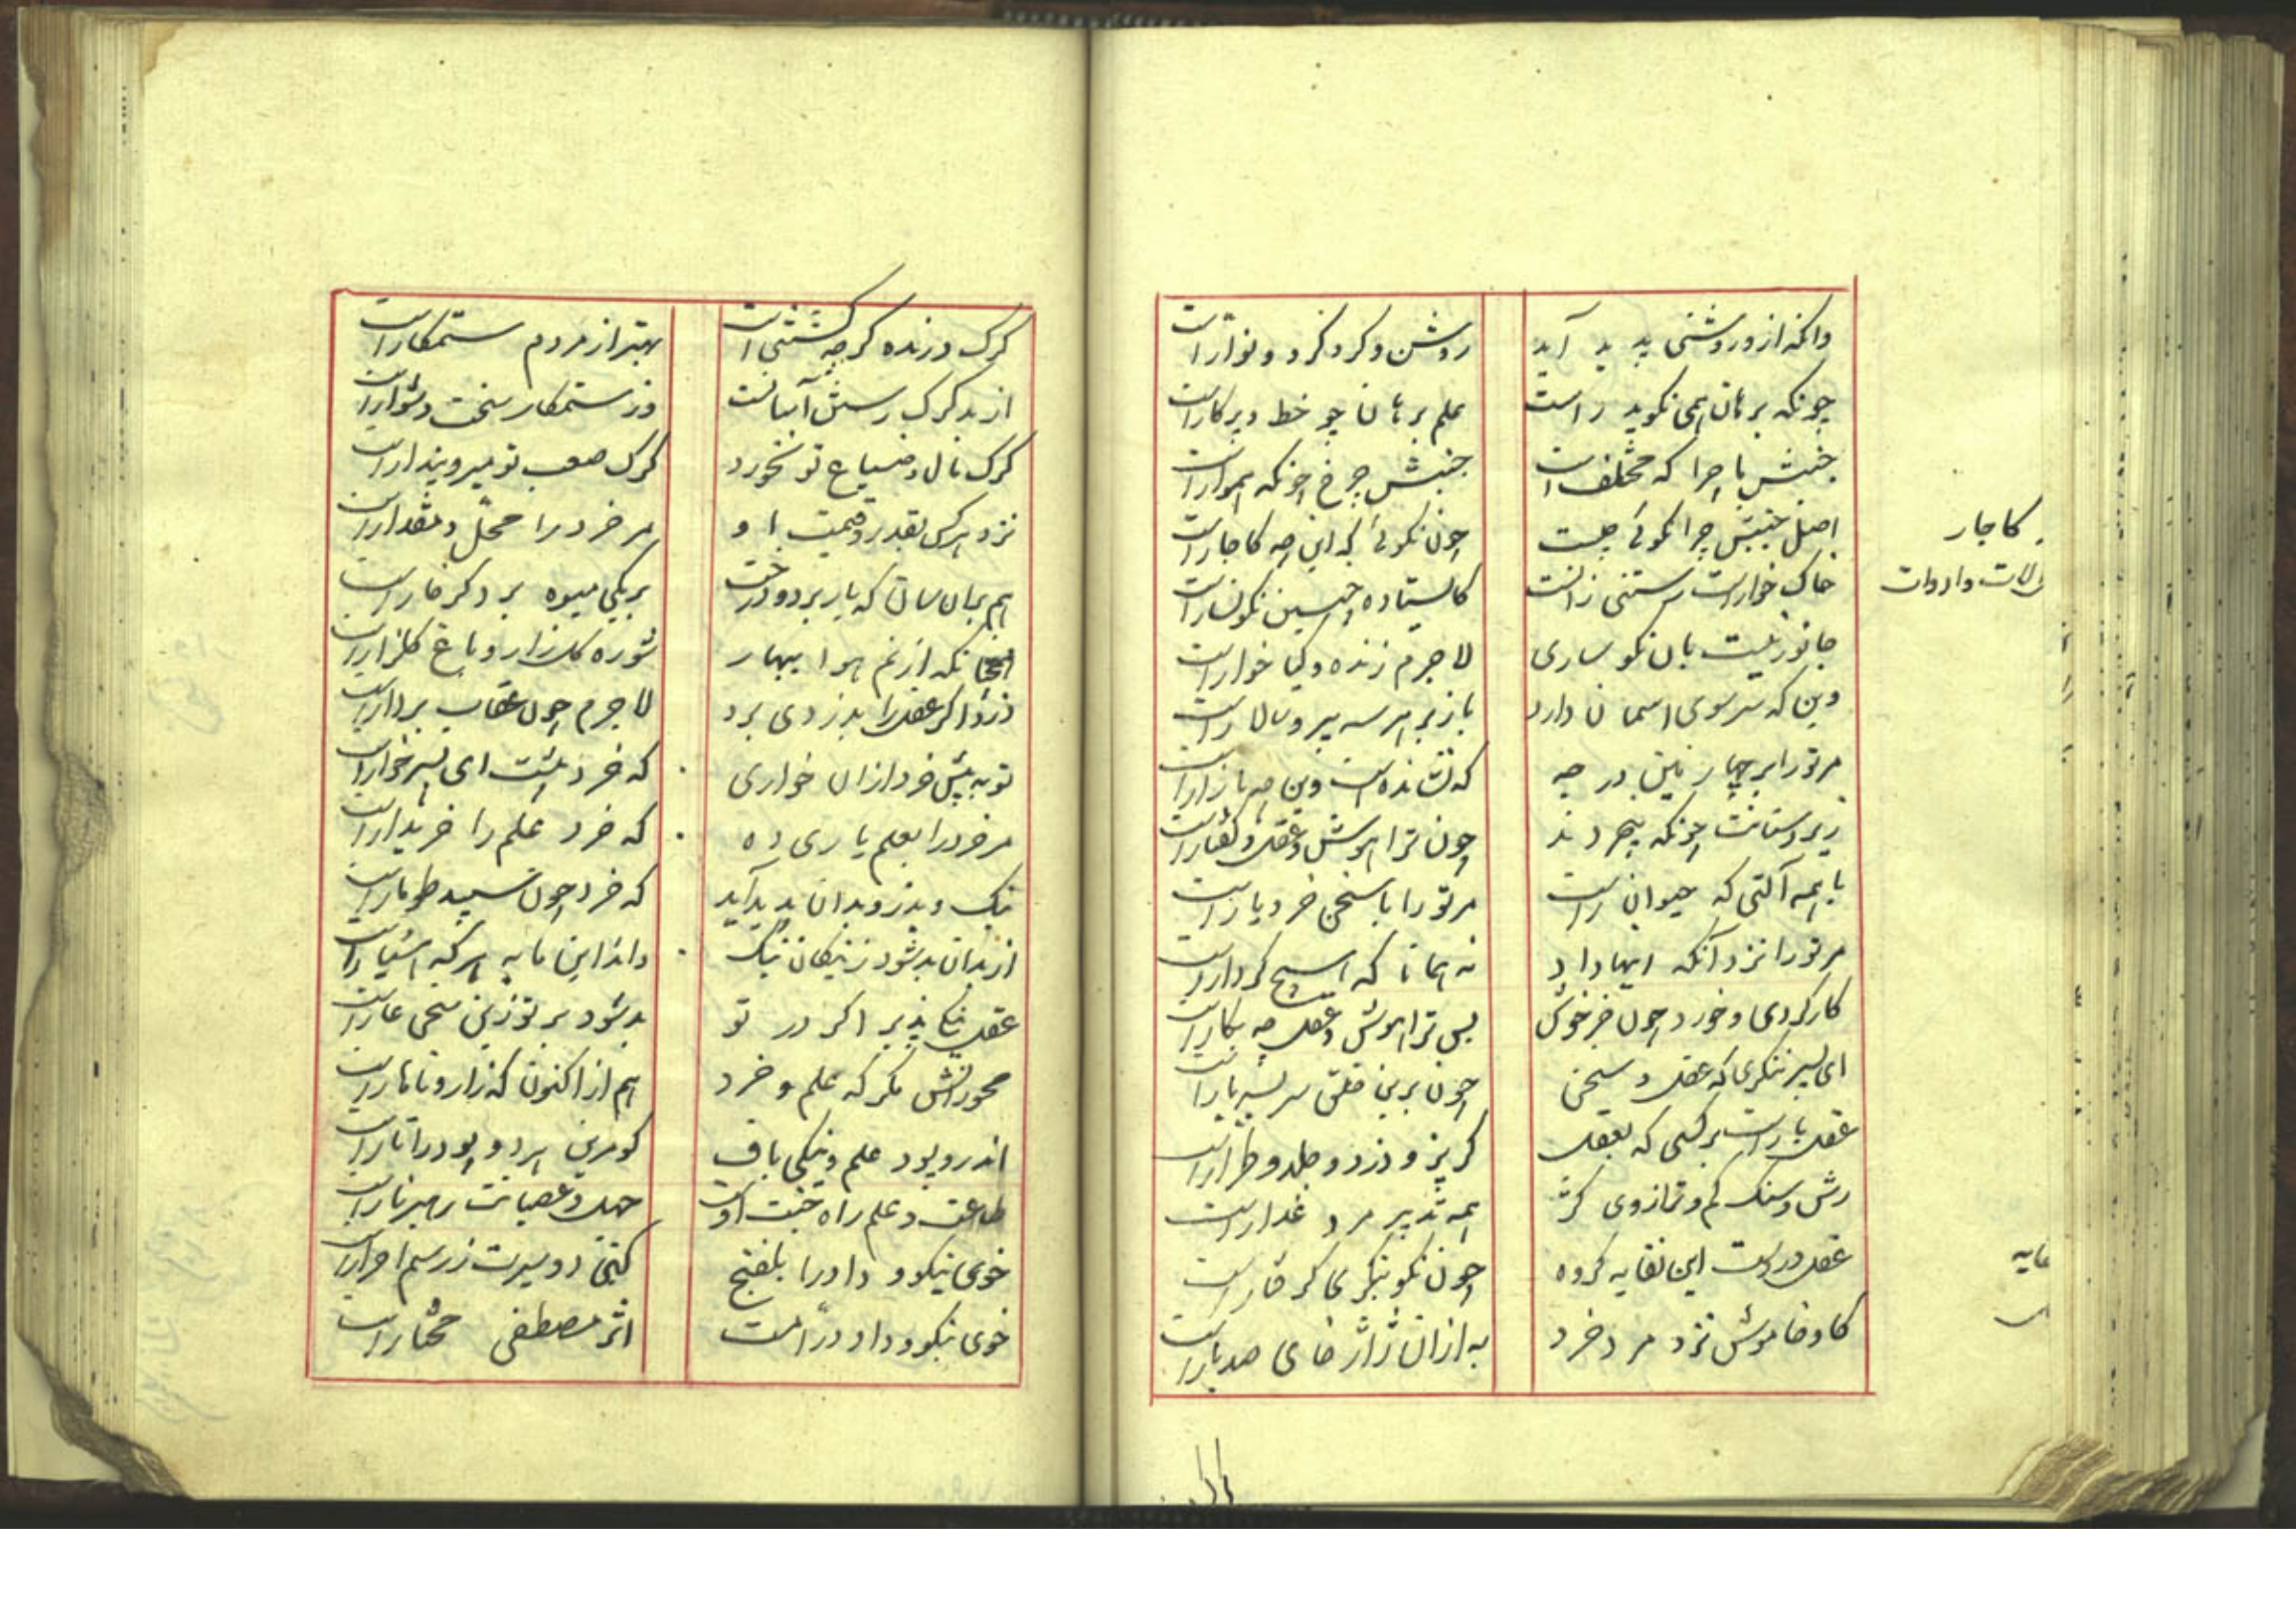 وانکه ازو روشنی پدید آید روشن و کرد کرد و نوّار است
چونکه برهان همی نکوید راست علم برهان چو خط و پرکار است
جنبش ما چرا که مختلف است جنبش چرخ چونکه هموار است
اصل جنبش چرا نکوئی چیست چون نکوئی که این چه کاچار است
خاک خوار است رستنی زانست کایستاده چنین نکونسار است
جانور نیست بان نکونساری لاجرم زنده و کیا خوار است
وین که سر سوی اسمان دارد باز بر هر سه میر و سالار است
مر تو را بر چهارمین درجه که نشانده است وین چه بازار است
زیر دستانت چونکه بیخردند چون ترا هوش و عقل و کفتار است
با همه آلتی که حیوان راست مر تو را با سخن خرد یار است
مر تو را نزد آنکه اینها داد نه همانا که هیچ کردار است
کار کردی و خورد چون خر خویش پس ترا هوش و عقل چه بکار است
ای پسر ننکری که عقل و سخن چون برین خلق سر بسر بار است
عقل بار است بر کسی که بعقل کربز و دزد و جلد و طرّار است
رش و سنک کم و ترازوی کژ همه تدبیر مرد غدار است
عقل در دست این نفایه کروه چون نکو بنکری کرفتار است
کاو خاموش نزد مرد خرد به از ان ژاژ خای صد بار است
کاچار
الات و ادوات
کرک درنده کرچه کشتنی است بهتر از مردم ستمکار است
از بد کرک رستن آسانست وز ستمکار سخت دشوار است
کرک مال و ضیاع تو نخورد کرک صعب تو میر و بندار است
نزد هر کس بقدر و قیمت او مر خرد را محل و مقدار است
هم بران سان که بار بر دو درخت بر یکی میوه بر دکر خار است
همچنانکه از نم هوا ببهار شوره کلزار و باغ کلزار است
دزد اکر عقل را بدزدی برد لاجرم چون عقاب بر دار است
تو به پیش خرد ازان خواری که خرد پیشت ای پسر خوار است
مر خرد را بعلم یاری ده که خرد علم را خریدار است
نیک و بد زو بدان پدید آید که خرد چون سپید طومار است
از بدان بد شود ز نیکان نیک داند این مایه هر که هشیار است
عقل نیکی پذیر اکر در تو بد شود بر تو زین سخن عار است
محور دانش مکر که علم و خرد هم از اکنون که زار و ناهار است
اندرو پود علم و نیکی باف کو مرین هر دو پود را تار است
طاعت و علم راه جنت اوست جهل و عصیانت رهبر نار است
خوی نیکو و داد را بلفنج کین دو سیرت ز رسم احرار است
خوی نیکو و داد در امت اثر مصطفی مختار است